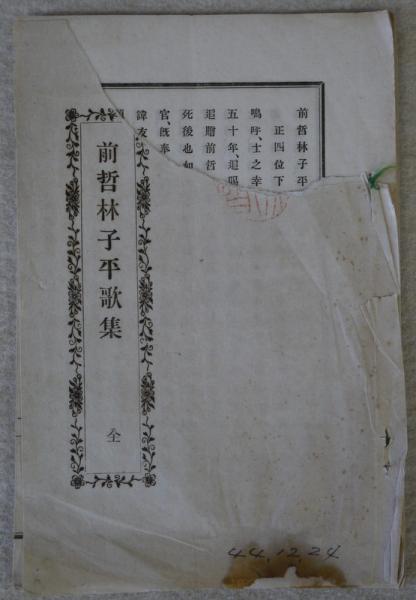 前哲林子平歌集
全
前哲林子平
正四位下
嗚呼、士之幸
五十年、追賜
追贈前哲
死後也如
官、既奉
諱友
44.12.24